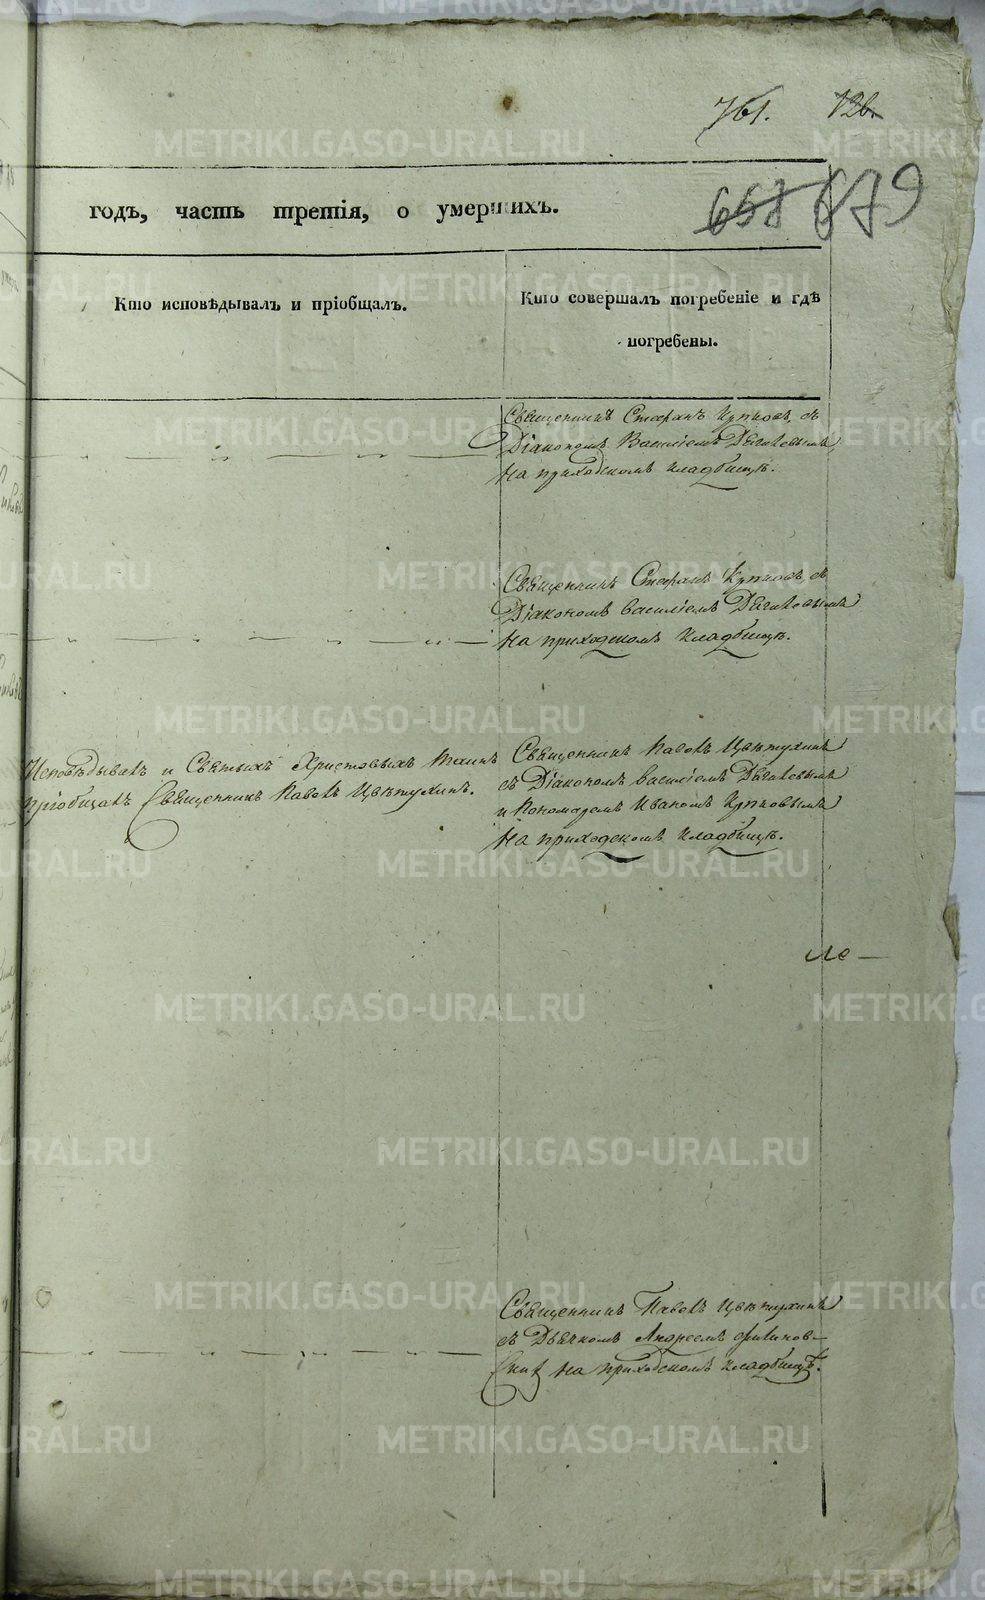 761. 126.
годъ, часть третія, о умершихъ. 658 679
Кто исповѣдывалъ и пріобщалъ.
Кто совершалъ погребеніе и гдѣ
погребены.
Священникъ Стефанъ съ
Діакономъ Василіемъ
На приходскомъ кладбищѣ.
Священникъ Стефанъ съ
Діакономъ Василіемъ
На приходскомъ кладбищѣ.
Исповѣдывалъ и Святыхъ Христовыхъ Таинъ
пріобщалъ Священникъ Павелъ Цвѣтухинъ.
Священникъ Павелъ Цвѣтухинъ
съ Діакономъ Василіемъ
и Пономаремъ Иваномъ
На приходскомъ кладбищѣ.
Священникъ Павелъ Цвѣтухинъ
съ Дьячкомъ Андреемъ Филинов-
на приходскомъ кладбищѣ.
METRIKI.GASO-URAL.RU